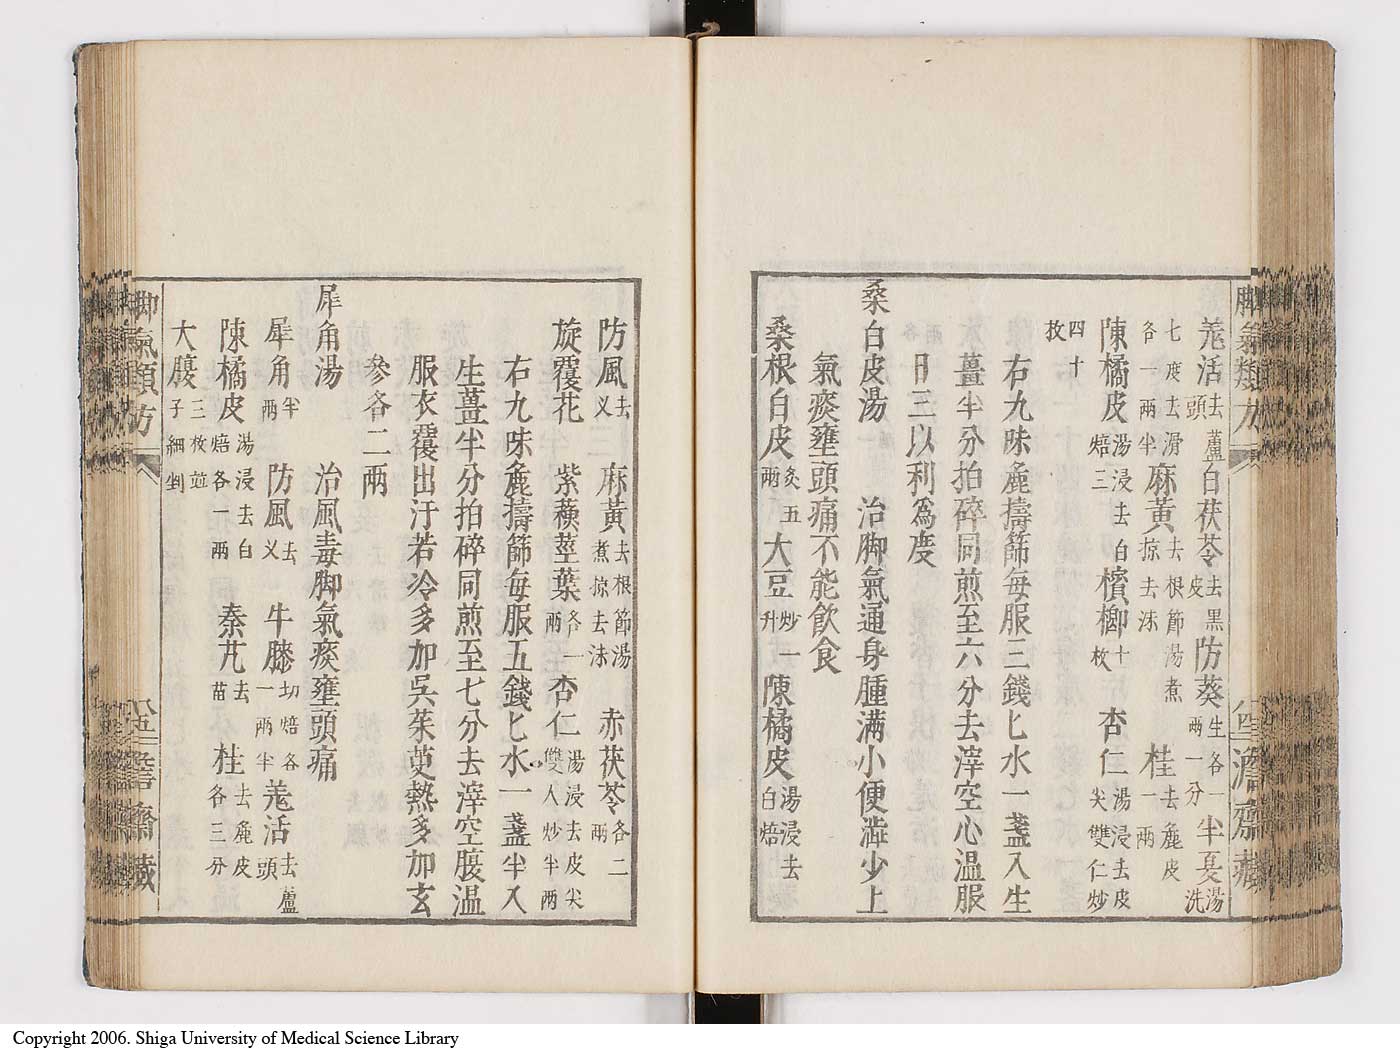 羌活去蘆頭白茯苓去黒皮防葵生各一兩一分半夏湯洗
七度去滑各一兩半麻黃去根節湯煮掠去沫桂去麁皮各一兩
陳橘皮湯浸去白焙三檳榔十枚杏仁湯浸去皮尖雙仁炒
四十枚
右九味麁擣篩每服三錢匕水一盞入生
薑半分拍碎同煎至六分去滓空心温服
日三以利為度
桑白皮湯 治脚氣通身腫滿小便澁少上
氣痰壅頭痛不能飲食
桑根白皮炙五兩大豆炒一升陳橘皮湯浸去白焙
防風去叉 麻黃去根節湯煮掠去沫 赤茯苓各二兩
旋覆花 紫蘇莖葉各一兩 杏仁湯浸去皮尖雙人炒半兩
右九味麁擣篩每服五錢匕水一盞半入
生薑半分拍碎同煎至七分去滓空腹温
服衣覆出汗若冷多加吳茱萸熱多加玄
參各二兩
犀角湯 治風毒脚氣痰壅頭痛
犀角半兩 防風去叉 牛膝切焙各一兩半 羌活去蘆頭
陳橘皮湯浸去白焙各一兩 秦艽去苗 桂去麁皮各三分
大腹三枚並子細剉
脚氣類方
澹齋藏
脚氣類方
澹齋藏
Copyright 2006. Shiga University of Medical Science Library